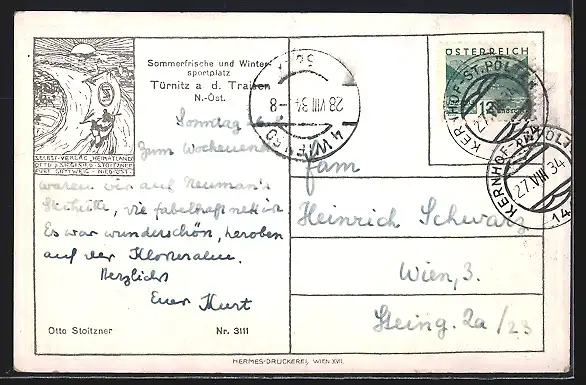 Sommerfrische und Winter-
sportplatz
Türnitz a. d. Traisen
N.-Öst.
SELBST-VERLAG „HEIMATLAND“
OTTO u. SIEGFRIED STOITZNER
FURT GÖTTWEIG - NIED. ÖST.
ÖSTERREICH
12
KERNHOF-ST. PÖLTEN
27.VIII 34
KERNHOF-ST. PÖLTEN
27.VIII 34
14
4 WIEN
28 VIII 34 -8
Sonntag
Zum Wochenende
waren wir auf Neumann's
Skihütte, die fabelhaft nett ist
Es war wunderschön, heroben
auf der Klosteralm.
Herzlichst
Euer Kurt
Fam
Heinrich Schwarz
Wien, 3.
Steing. 2a/23
Otto Stoitzner
Nr. 3111
HERMES-DRUCKEREI, WIEN XVII.